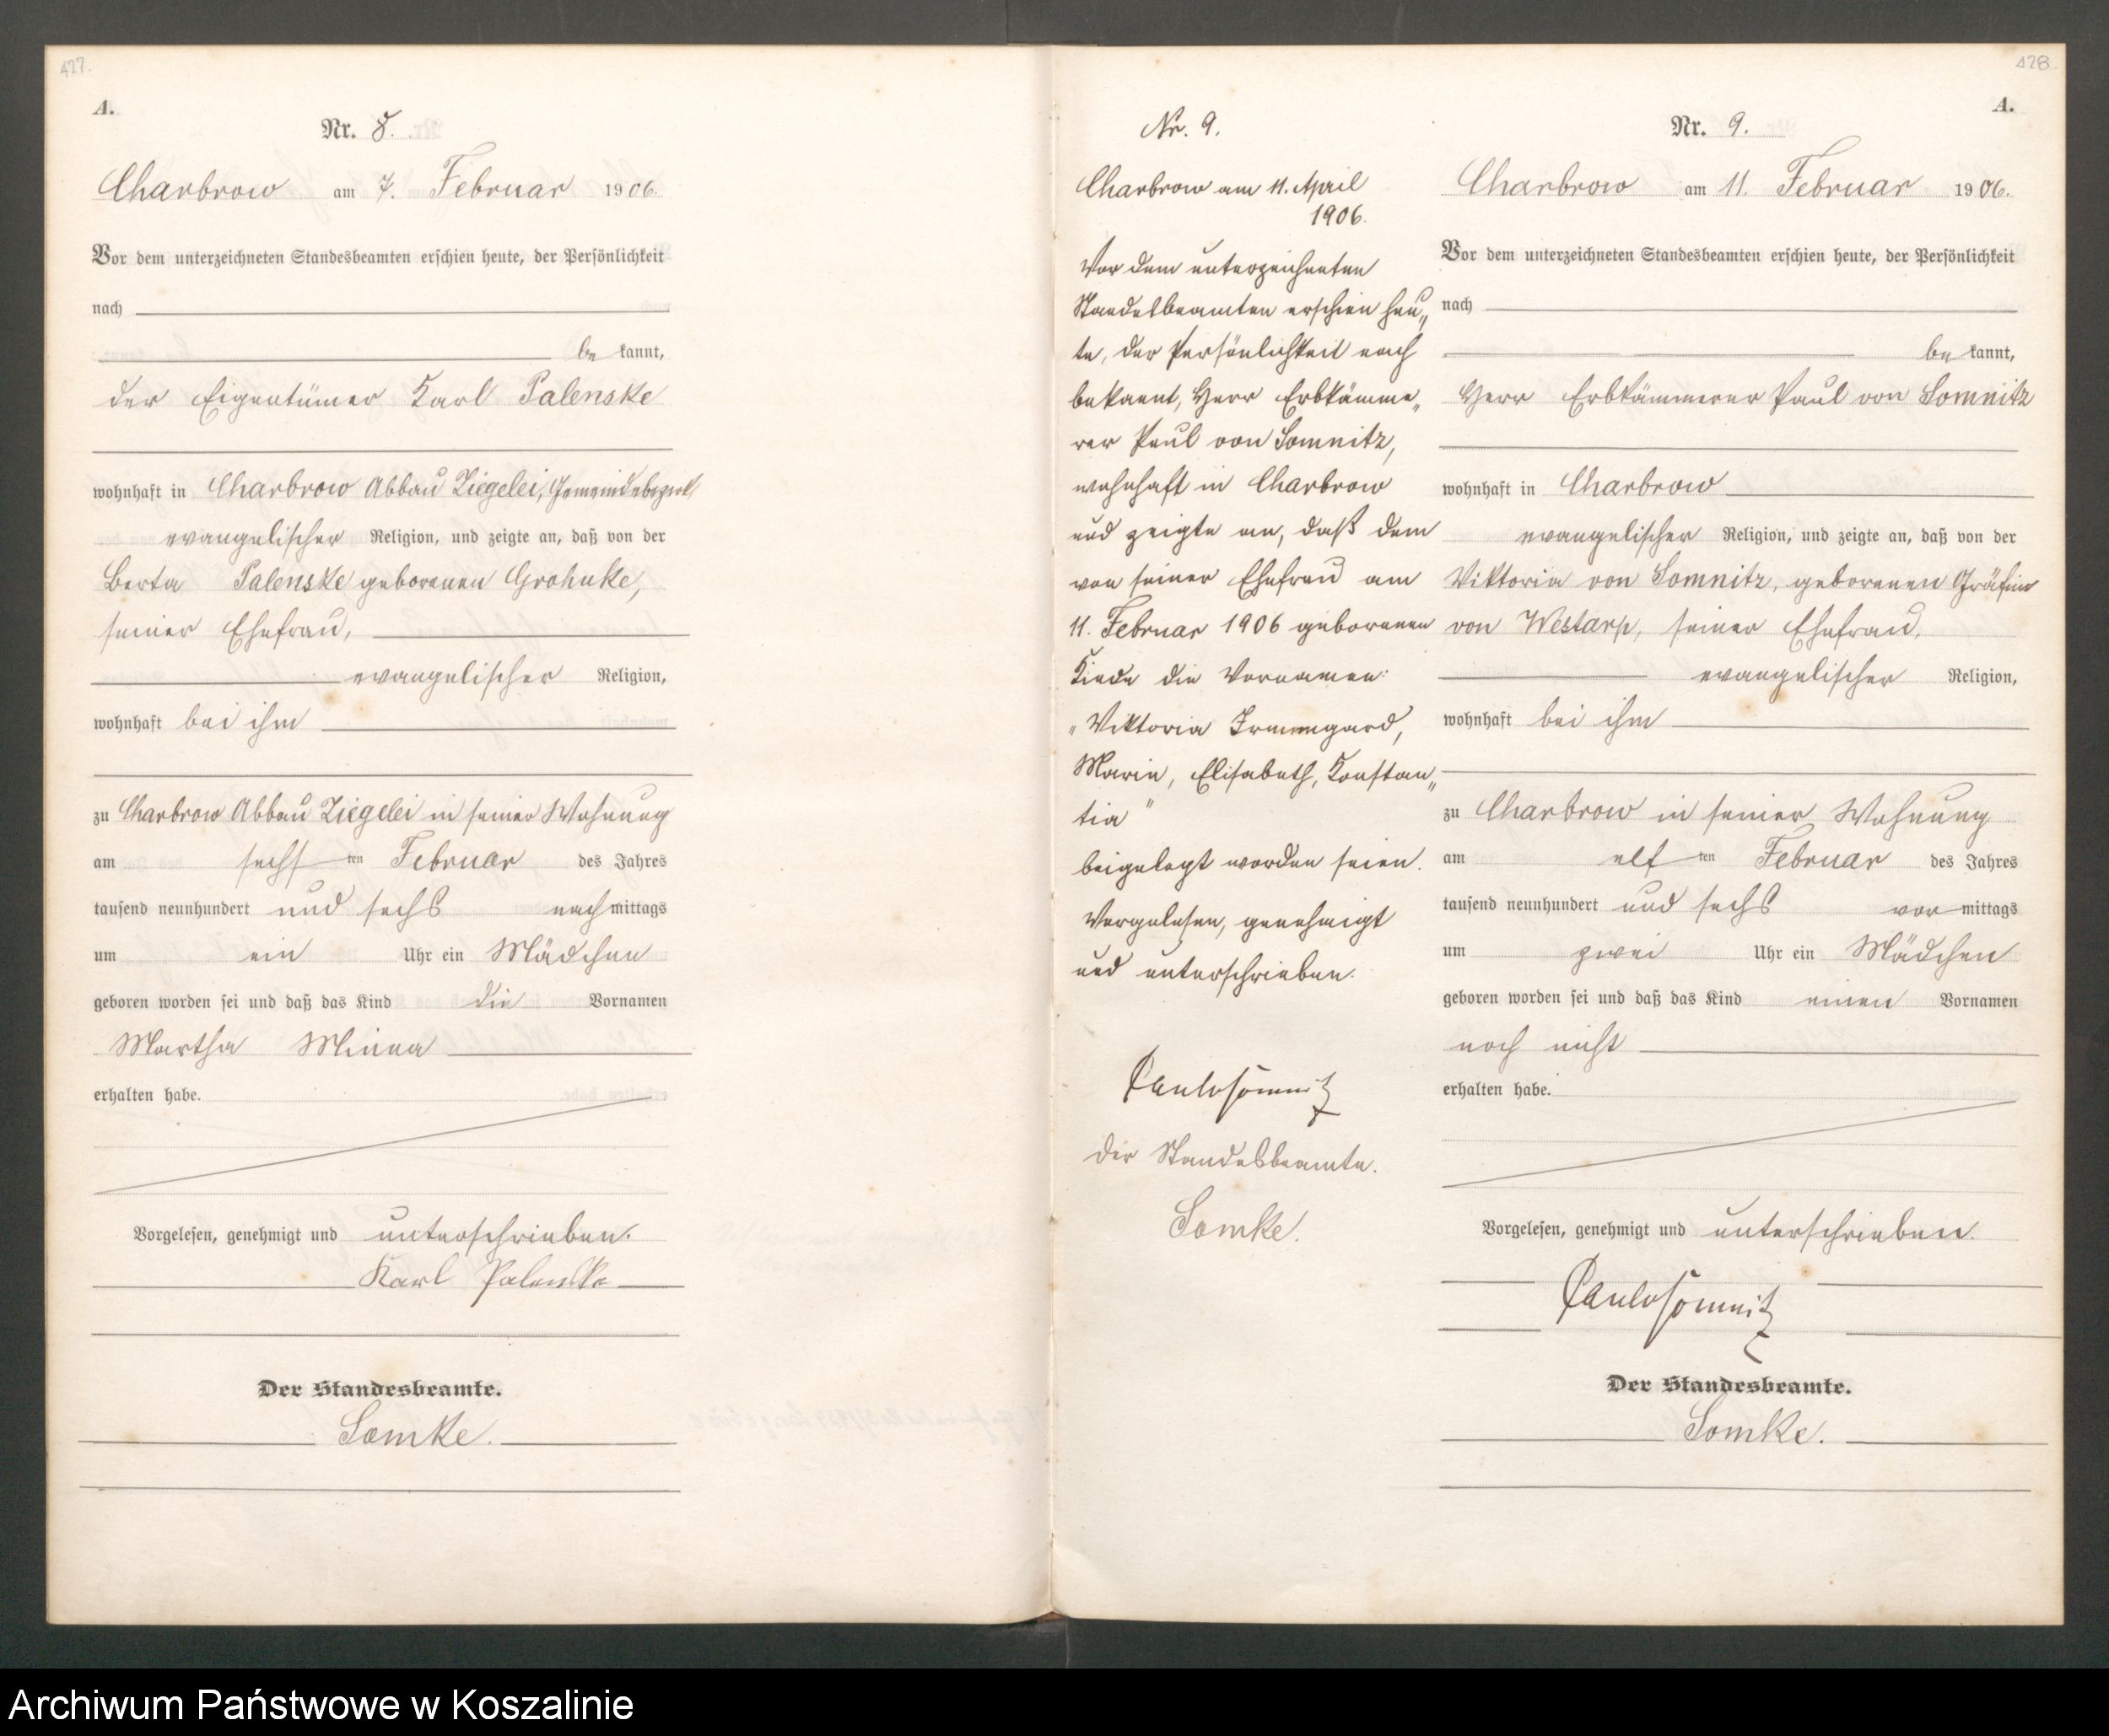 427.
A.
Nr. 8.
Charbrow am 7. Februar 1906.
Vor dem unterzeichneten Standesbeamten erschien heute, der Persönlichkeit
nach
be kannt,
der Eigentümer Karl Palenske
wohnhaft in Charbrow Abbau Ziegelei, Gemeindebezirk
evangelischer Religion, und zeigte an, daß von der
Berta Palenske geborenen Grohnke,
seiner Ehefrau,
evangelischer Religion,
wohnhaft bei ihm
zu Charbrow Abbau Ziegelei in seiner Wohnung
am sechsten Februar des Jahres
tausend neunhundert und sechs nachmittags
um ein Uhr ein Mädchen
geboren worden sei und daß das Kind die Vornamen
Martha Minna
erhalten habe.
Vorgelesen, genehmigt und unterschrieben.
Karl Palenske
Der Standesbeamte.
Somke.
Nr. 9.
Charbrow am 11. April
1906.
Vor dem unterzeichneten
Standesbeamten erschien heu„
te, der Persönlichkeit nach
bekannt, Herr Erbkämme„
rer Paul von Somnitz,
wohnhaft in Charbrow
und zeigte an, daß dem
von seiner Ehefrau am
11. Februar 1906 geborenen
Kinde die Vornamen:
„Viktoria Irmmgard,
Marie, Elisabeth, Konstan„
tia“
beigelegt worden seien.
Vorgelesen, genehmigt
und unterschrieben.
Paul v Somnitz
Der Standesbeamte.
Somke.
428.
A.
Nr. 9.
Charbrow am 11. Februar 1906.
Vor dem unterzeichneten Standesbeamten erschien heute, der Persönlichkeit
nach
be kannt,
Herr Erbkämmerer Paul von Somnitz
wohnhaft in Charbrow
evangelischer Religion, und zeigte an, daß von der
Viktoria von Somnitz, geborenen Gräfin
von Westarp, seiner Ehefrau,
evangelischer Religion,
wohnhaft bei ihm
zu Charbrow in seiner Wohnung
am elften Februar des Jahres
tausend neunhundert und sechs vormittags
um zwei Uhr ein Mädchen
geboren worden sei und daß das Kind einen Vornamen
noch nicht
erhalten habe.
Vorgelesen, genehmigt und unterschrieben.
Paul v Somnitz
Der Standesbeamte.
Somke.
Archiwum Państwowe w Koszalinie